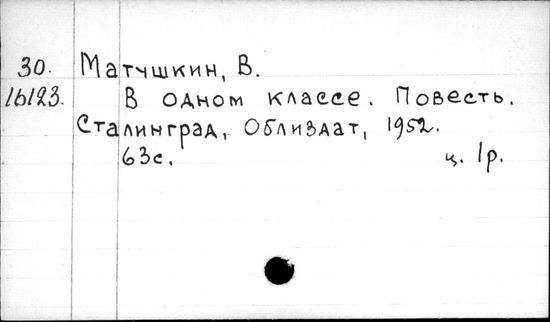 30. Матушкин, В.
16123. В одном классе. Повесть.
Сталинград, Облиздат, 1952.
63с. ц. 1р.